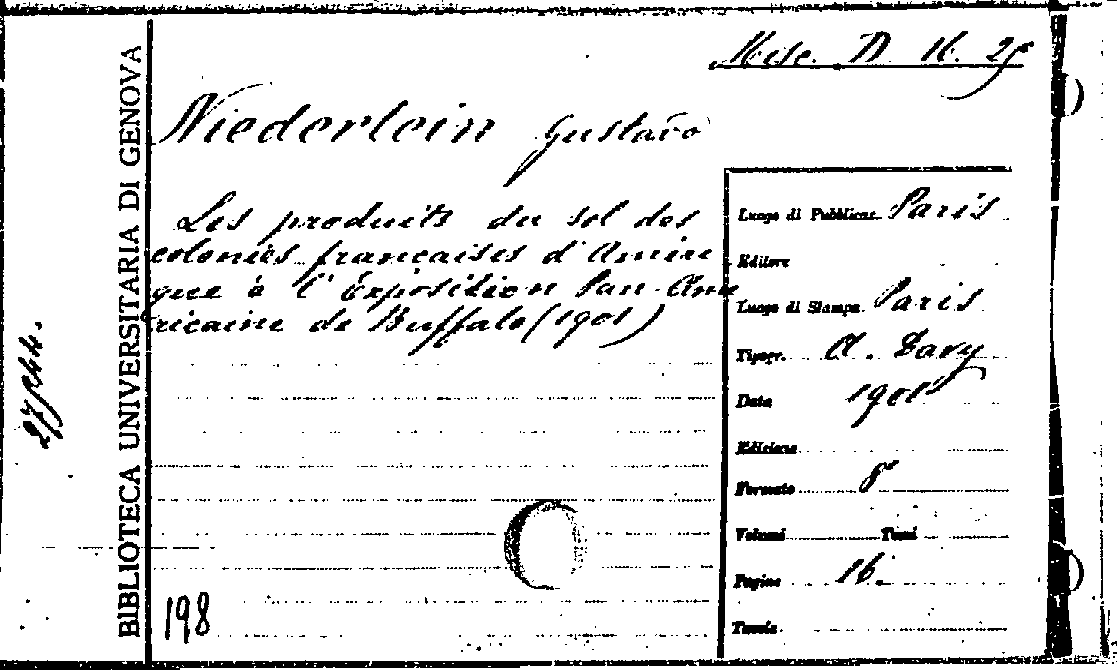 Misc. D. 16. 25
Niederlein Gustavo
Les produits du sol des
colonies françaises d'Améri
que à l'Exposition Pan-Amé
ricaine de Buffalo (1901)
198
BIBLIOTECA UNIVERSITARIA DI GENOVA
Luogo di Pubblicaz. Paris
Editore
Luogo di Stampa Paris
Tipogr. A. Davy
Data 1901
Edizione
Formato 8°
Volumi Tomi
Pagine 16.